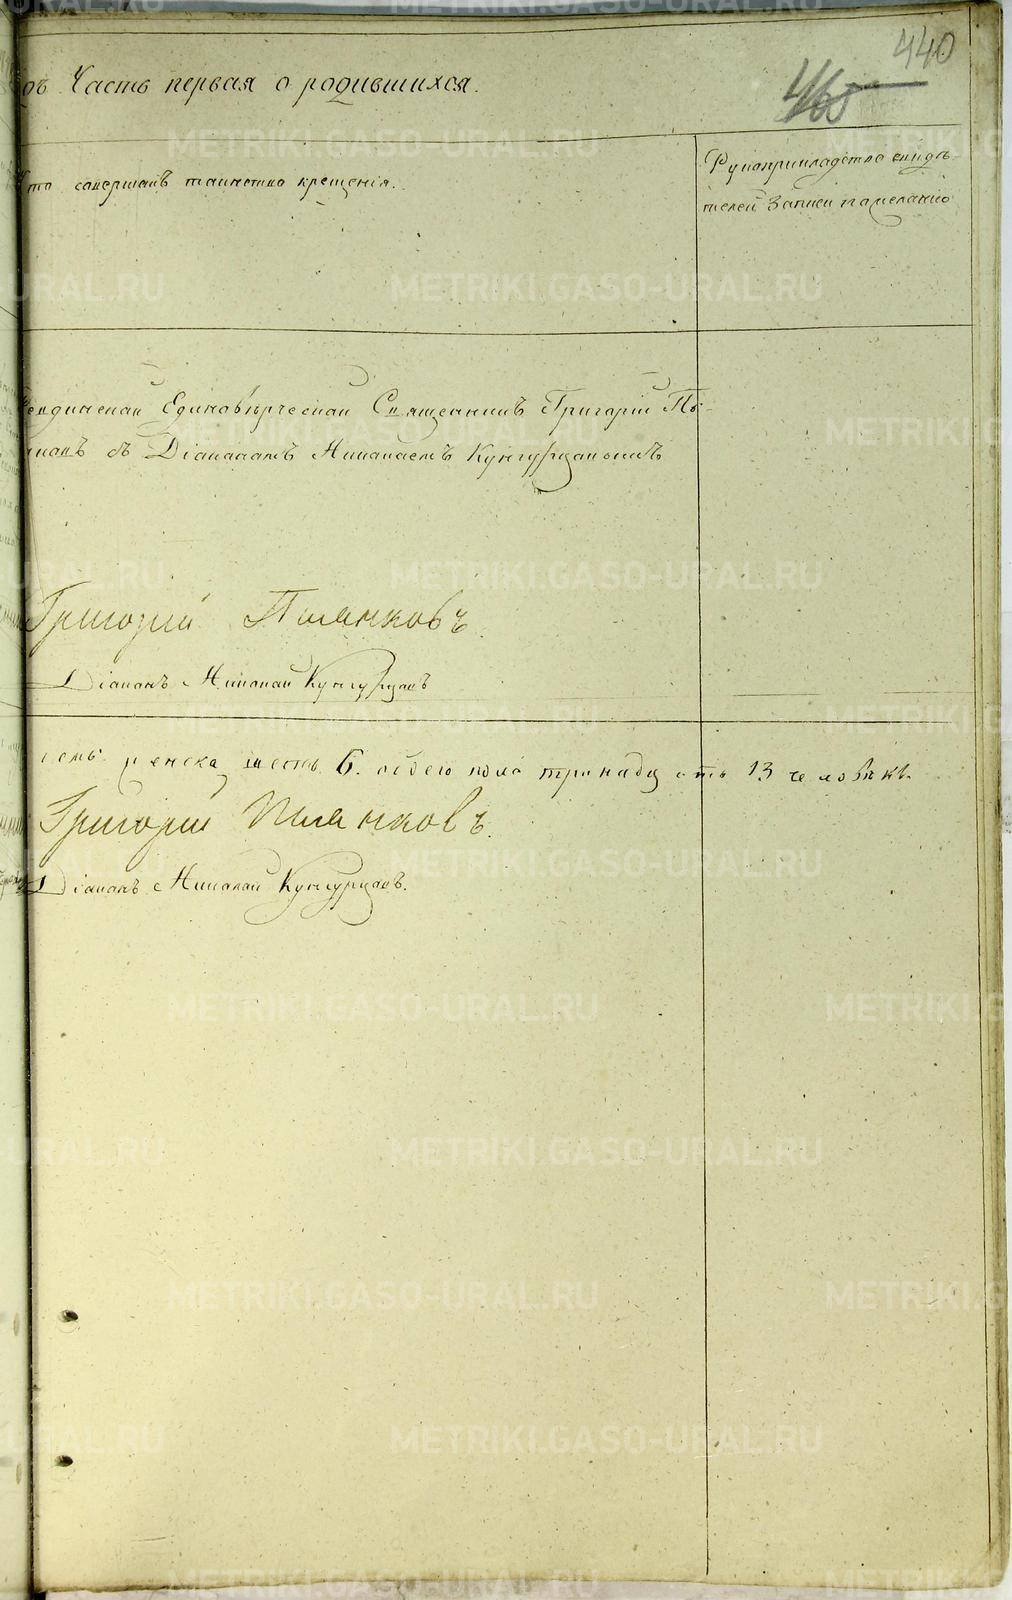 440
465
дъ Часть первая о родившихся.
Кто совершалъ таинство крещенія.
Рукоприкладство свидѣ-
телей записи по желанію
Единовѣрческой Священникъ Григорій Пь-
янковъ съ Діакономъ Николаемъ Кунгурцовымъ
Григорий Пьянковъ
Діаконъ Николай Кунгурцовъ
семь женска шесть 6. обоего пола тринадцать 13 человѣкъ.
Григорий Пьянковъ.
Діаконъ Николай Кунгурцовъ.
METRIKI.GASO-URAL.RU